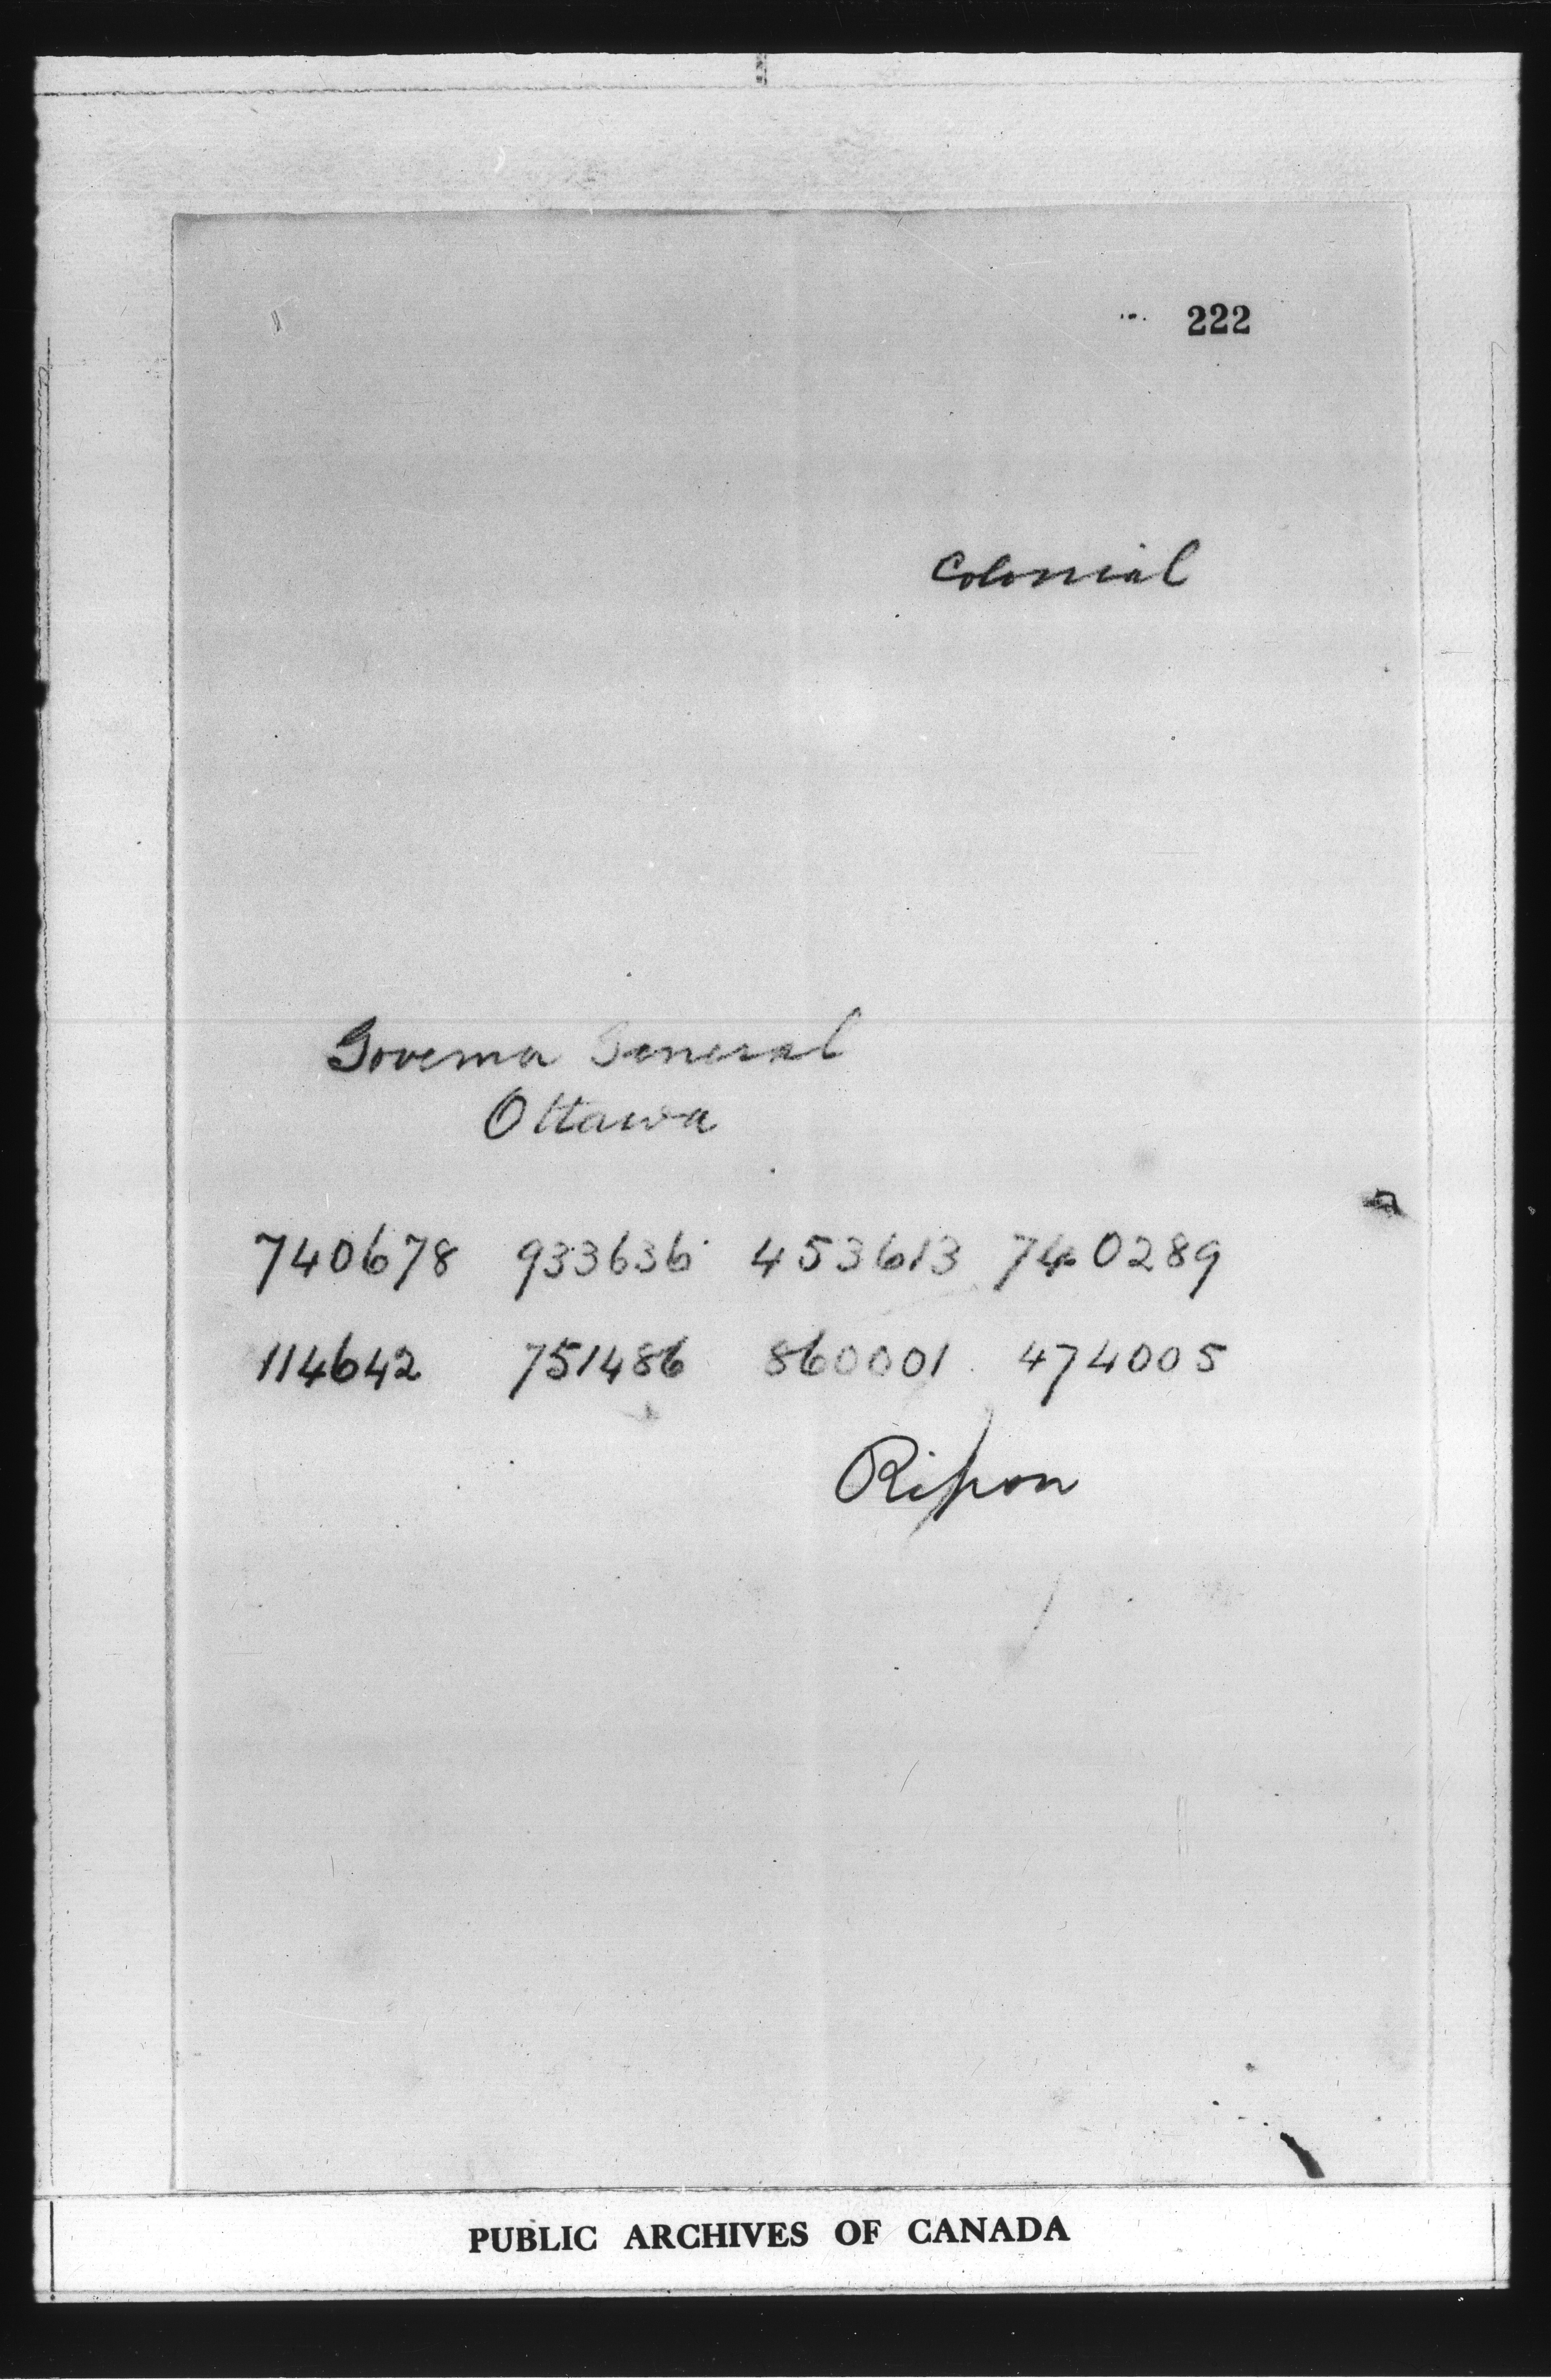 222
Colonial
Governor General
Ottawa
740678 933636 453613 740289
114642 751486 860001 474005
Ripon
PUBLIC ARCHIVES OF CANADA